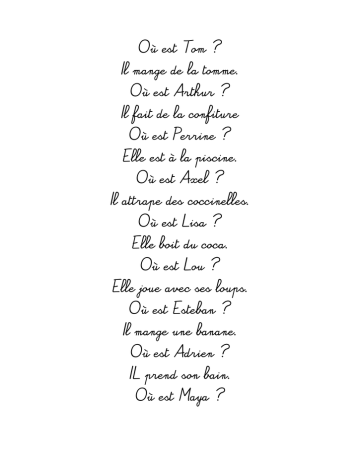 Où est Tom ?
Il mange de la tomme.
Où est Arthur ?
Il fait de la confiture
Où est Perrine ?
Elle est à la piscine.
Où est Axel ?
Il attrape des coccinelles.
Où est Lisa ?
Elle boit du coca.
Où est Lou ?
Elle joue avec ses loups.
Où est Esteban ?
Il mange une banane.
Où est Adrien ?
IL prend son bain.
Où est Maya ?